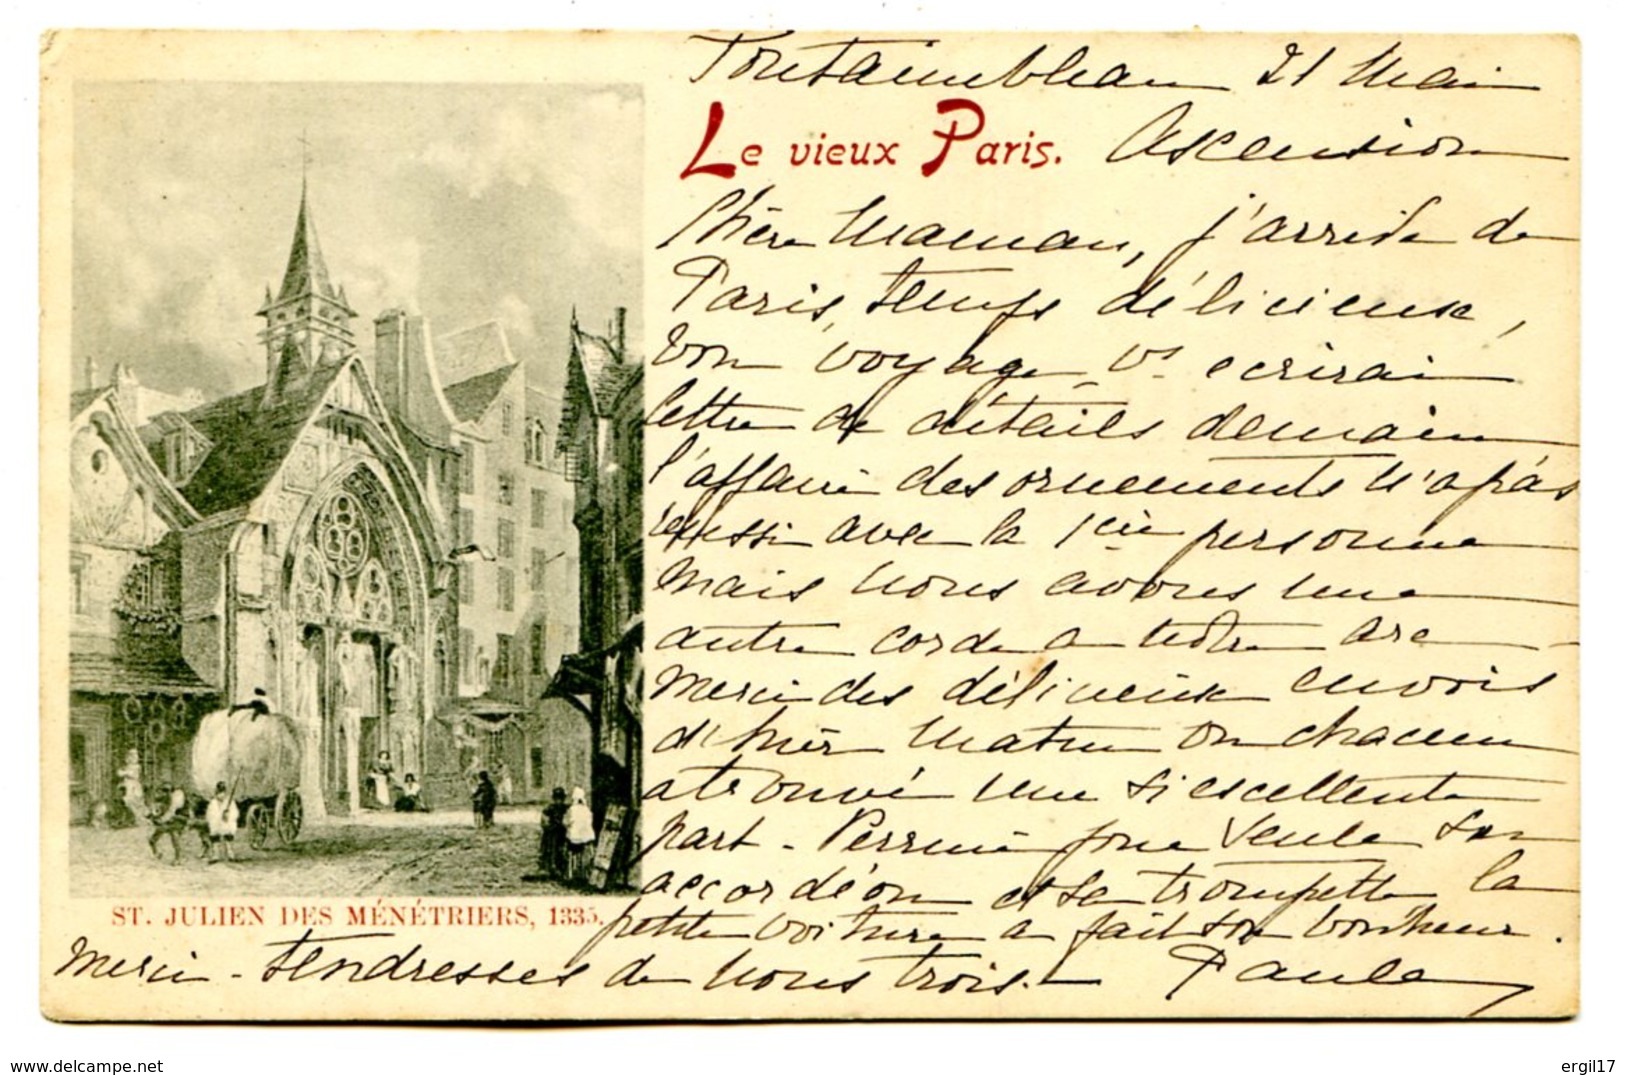 Fontainebleau 21 Mai
Le vieux Paris. Ascension
Chère Maman, j'arrive de
Paris, temps délicieux,
bon voyage, Vs ecrirai
lettre de détails demain
l'affaire des ornements n'a pas
réussi avec la 1ère personne
mais nous avons une
autre corde a notre arc
merci des délicieux envois
d'hier Matin on chacun
a trouvé une si excellente
part - Perrine joue seule son
accordéon et sa trompette, la
petite voiture a fait son bonheur.
merci - tendresses de nous trois. - Paule
ST. JULIEN DES MÉNÉTRIERS, 1335.
www.delcampe.net
ergil17